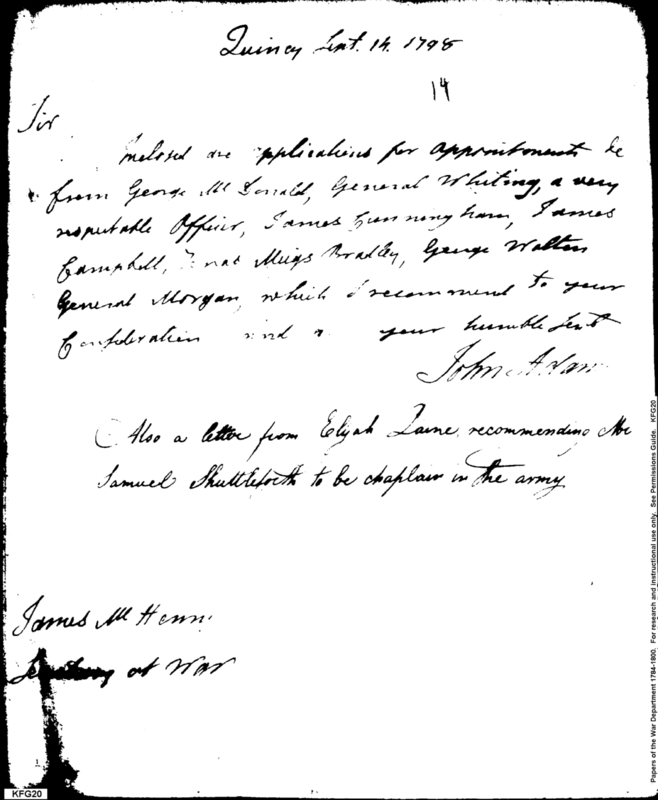 Quincy Sept. 14. 1798
14
Sir
Inclosed are applications for appointments &c
from George McDonald, General Whiting, a very
respectable Officer, James Cunningham, James
Campbell, Meigs Bradley, George Walton
General Morgan, which I recommend to your
Consideration and your humble Sert
John Adams
Also a letter from Elijah Paine recommending Mr
Samuel Shuttlesworth to be chaplain in the army
James McHenry
Secretary at War
KFG20
Papers of the War Department 1784-1800. For research and instructional use only. See Permissions Guide. KFG20